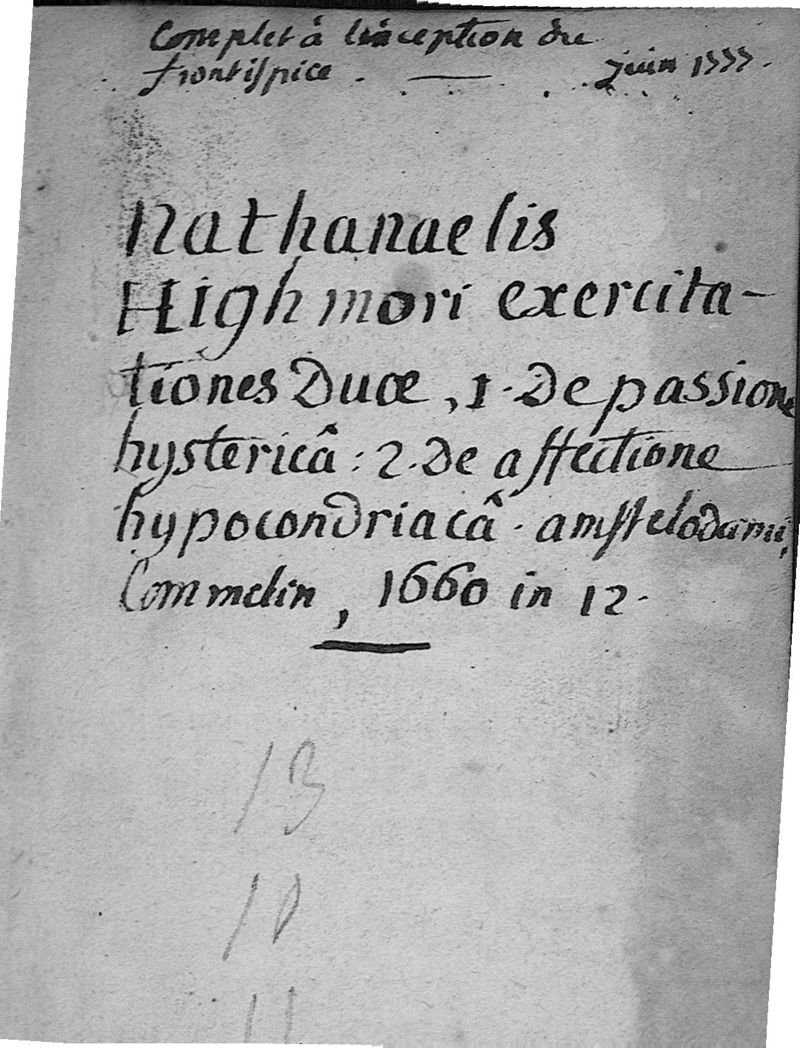 Complet à l'inception du
frontispice. — juin 1777.
Nathanaelis
Highmori exercita-
tiones Duæ, 1. De passione
hystericâ: 2. De affectione
hypocondriacâ. amstelodami,
Commelin, 1660 in 12.
13
10
11